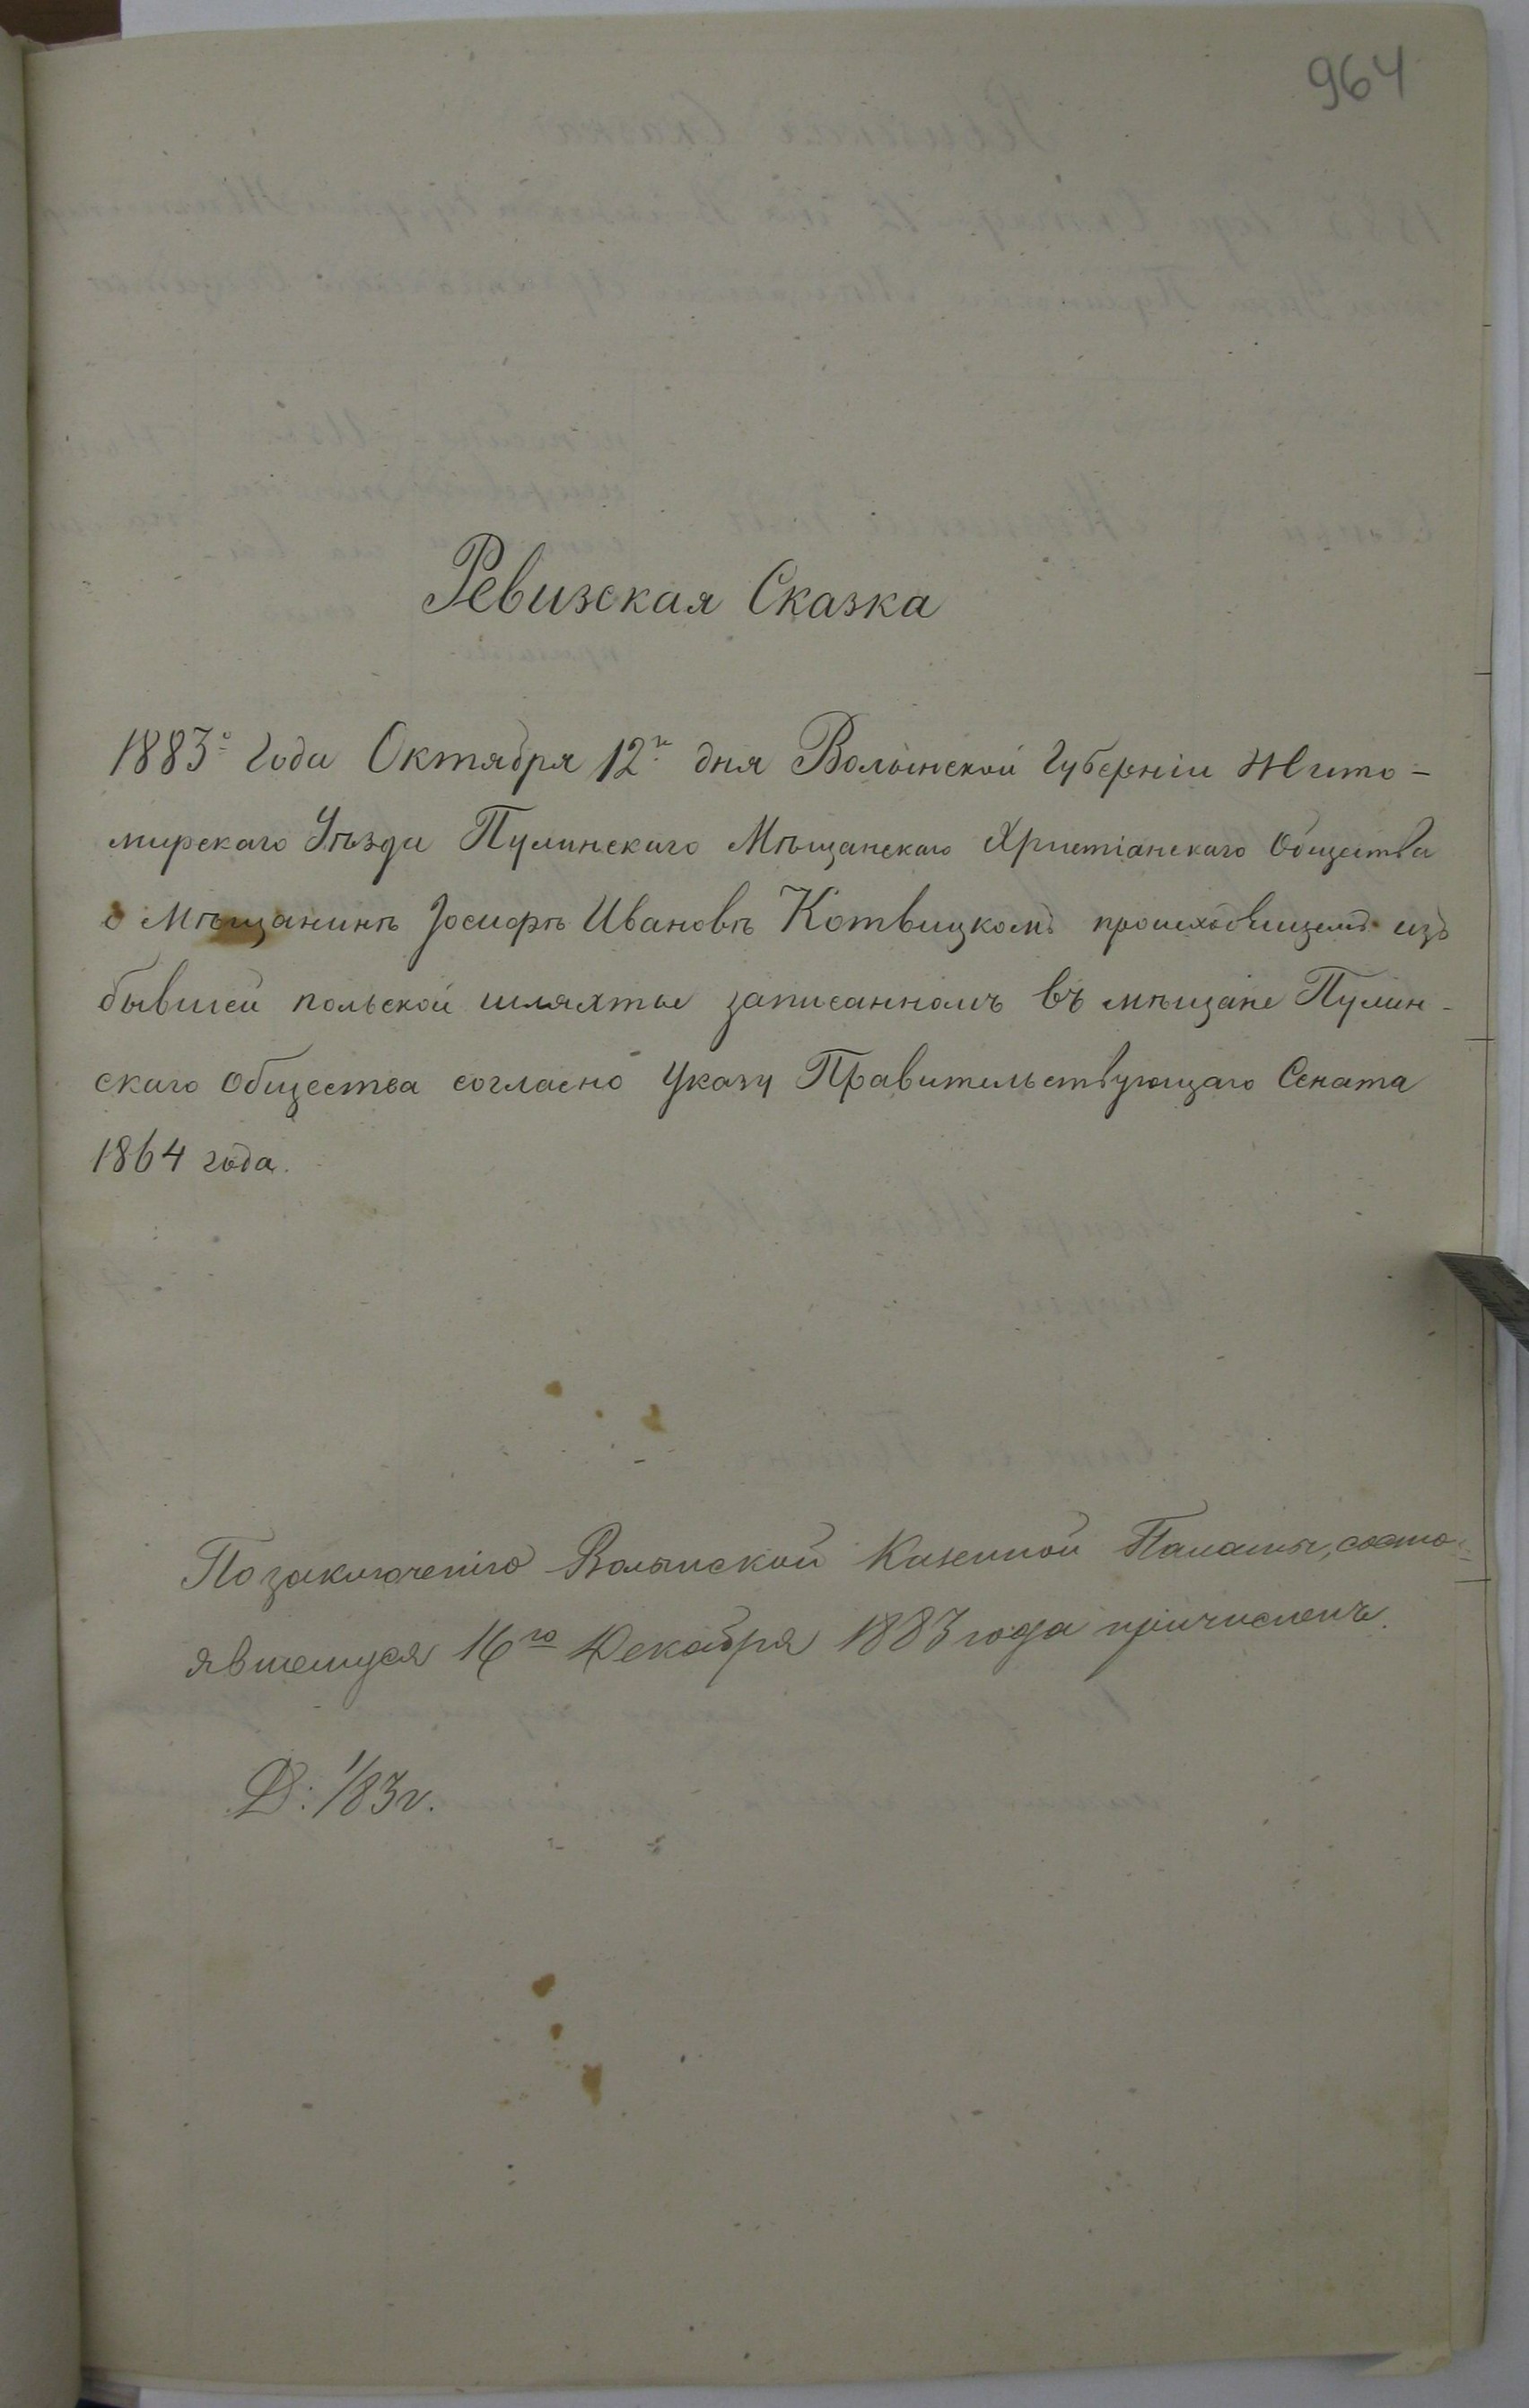 964
Ревизская Сказка
1883º года Октября 12го дня Волынской Губерніи Жито-
мирскаго Уѣзда Пулинскаго Мѣщанскаго Христіанскаго Общества
о Мѣщанинѣ Іосифѣ Ивановѣ Котвицкомъ происходящемъ изъ
бывшей польской шляхты записанномъ въ мѣщане Пулин-
скаго общества согласно Указу Правительствующаго Сената
1864 года.
По заключенію Волынской Казенной Палаты, состо-
явшемуся 16го Декабря 1883 года причисленъ.
Д: 1/83 г.